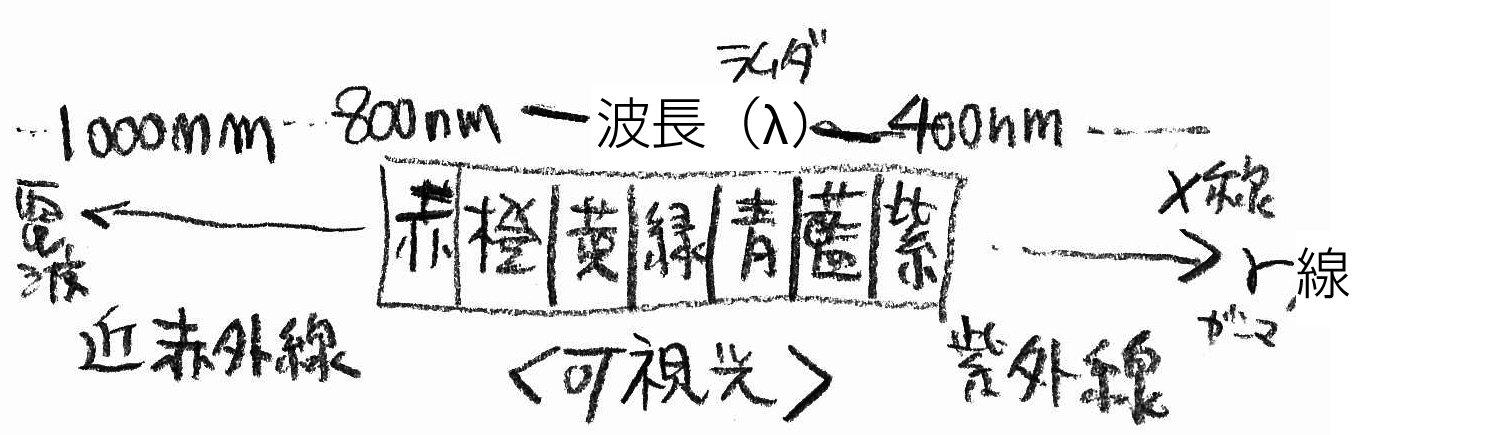 ラムダ
…1000nm…800nm ― 波長（λ）― 400nm ----
X線
電波 ← 赤 橙 黄 緑 青 藍 紫 → γ線
ガンマ
近赤外線 <可視光> 紫外線